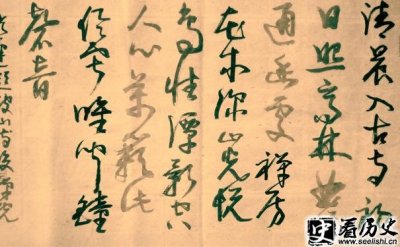 清晨入古寺初
日照高林曲
通幽處禅房
花木深山光悦
鸟性潭影空
人心萬籟此
俱寂唯闻鐘
磬音
题破山寺後禅院
史 看历史
www.seelishi.com